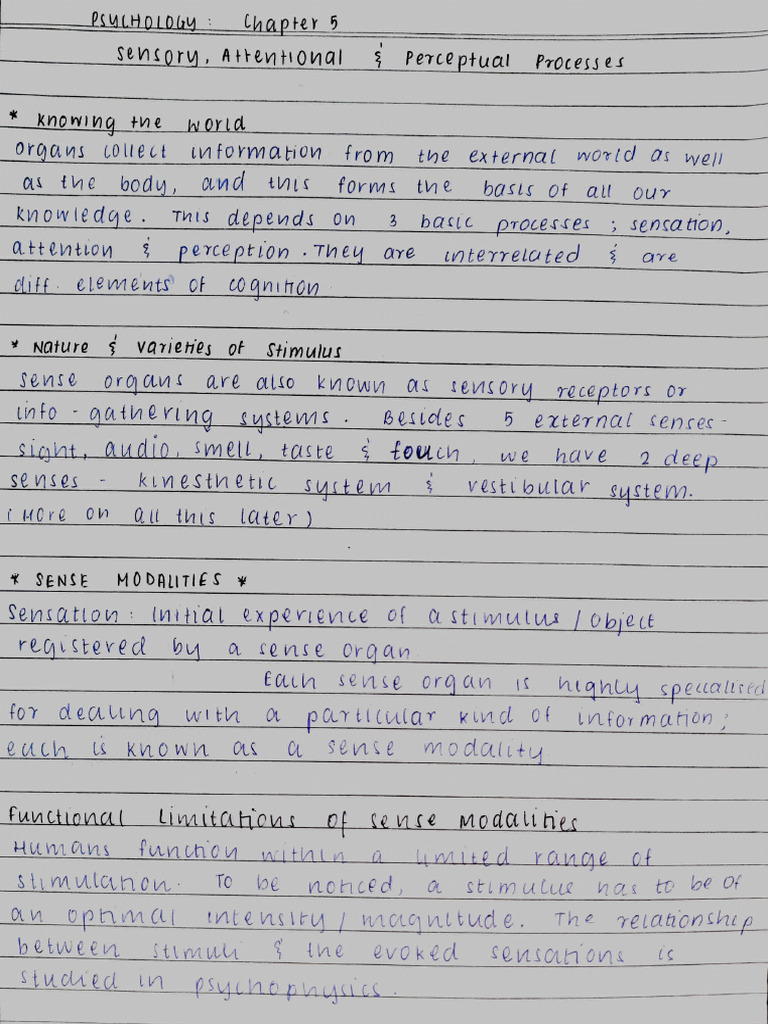 PSYCHOLOGY: Chapter 5
Sensory, Attentional & Perceptual Processes
* Knowing the World
Organs collect information from the external world as well
as the body, and this forms the basis of all our
knowledge. This depends on 3 basic processes; sensation,
attention & perception. They are interrelated & are
diff. elements of cognition
* Nature & Varieties of Stimulus
Sense organs are also known as sensory receptors or
info-gathering systems. Besides 5 external senses-
sight, audio, smell, taste & touch, we have 2 deep
senses - kinesthetic system & vestibular system.
(More on all this later)
* SENSE MODALITIES *
Sensation: Initial experience of a stimulus/object
registered by a sense organ
Each sense organ is highly specialised
for dealing with a particular kind of information;
each is known as a sense modality
Functional Limitations of Sense Modalities
Humans function within a limited range of
stimulation. To be noticed, a stimulus has to be of
an optimal intensity/magnitude. The relationship
between stimuli & the evoked sensations is
studied in psychophysics.